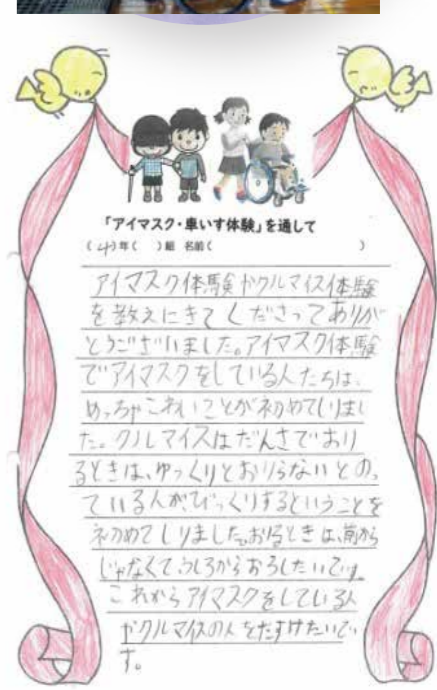 「アイマスク・車いす体験」を通して
(4)年( )組 名前( )
アイマスク体験やクルマイス体験
を教えにきてくださってありが
とうございました。アイマスク体験
でアイマスクをしている人たちは、
めっちゃこわいことが初めてしりまし
た。クルマイスはだんさでおり
るときは、ゆっくりとおりらないとの、
ている人がびっくりするということを
初めてしりました。おりるときは、前から
じゃなくてうしろからおろしたいです。
これからアイマスクをしている人
やクルマイスの人をたすけたいで
す。